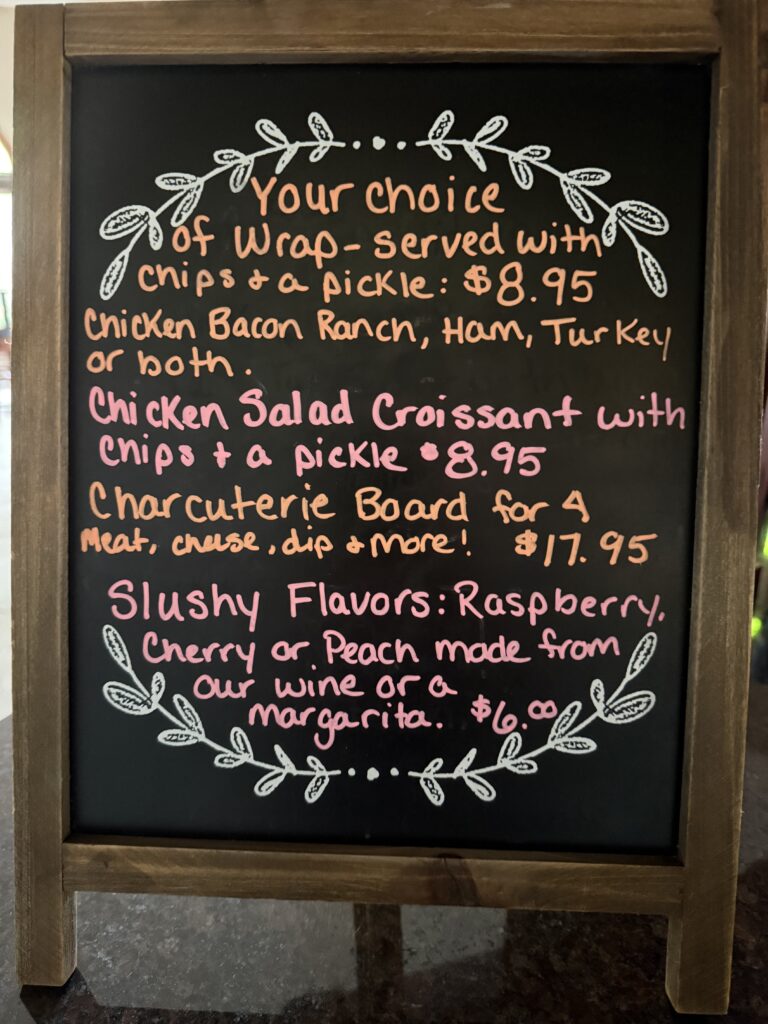 Your choice
of Wrap - served with
chips & a pickle: $8.95
Chicken Bacon Ranch, Ham, Turkey
or both.
Chicken Salad Croissant with
chips & a pickle $8.95
Charcuterie Board for 4
Meat, cheese, dip & more! $17.95
Slushy Flavors: Raspberry,
Cherry or Peach made from
our wine or a
margarita. $6.00